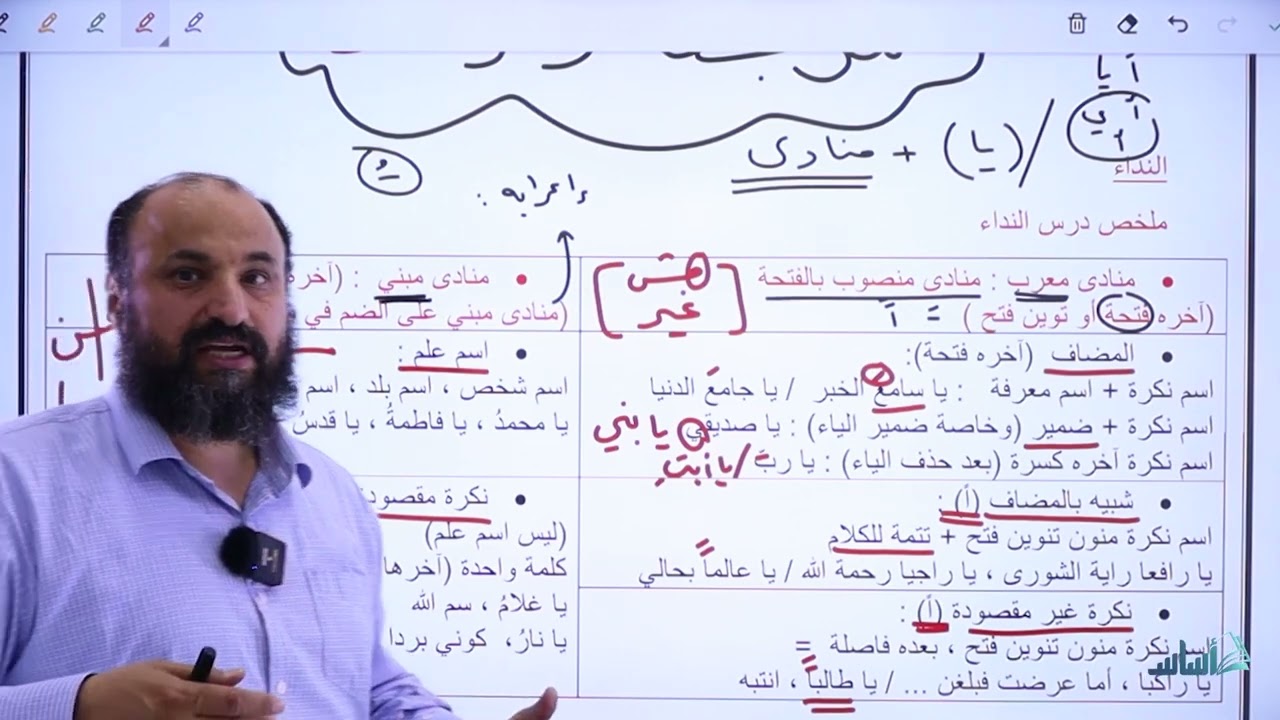 أيا
أي / (يا) + منادى
النداء
إعرابه :
ملخص درس النداء
منادى معرب : منادى منصوب بالفتحة
(آخره فتحة أو تنوين فتح ) = أ
هش
غير
المضاف (آخره فتحة):
اسم نكرة + اسم معرفة : يا سامعَ الخبر / يا جامعَ الدنيا
اسم نكرة + ضمير (وخاصة ضمير الياء) : يا صديقي يا بني
اسم نكرة آخره كسرة (بعد حذف الياء) : يا ربِّ / يا أبتِ
شبيه بالمضاف (اً) :
اسم نكرة منون تنوين فتح + تتمة للكلام
يا رافعا راية الشورى ، يا راجيا رحمة الله / يا عالماً بحالي
نكرة غير مقصودة (اً) :
اسم نكرة منون تنوين فتح ، بعده فاصلة =
يا راكبا ، أما عرضت فبلغن ... / يا طالباً ، انتبه
منادى مبني : (آخره
(منادى مبني على الضم في
اسم علم :
اسم شخص ، اسم بلد ، اسم
يا محمدُ ، يا فاطمةُ ، يا قدسُ
نكرة مقصودة
(ليس اسم علم)
كلمة واحدة (آخرها
يا غلامُ ، سم الله
يا نارُ، كوني بردا
أساس